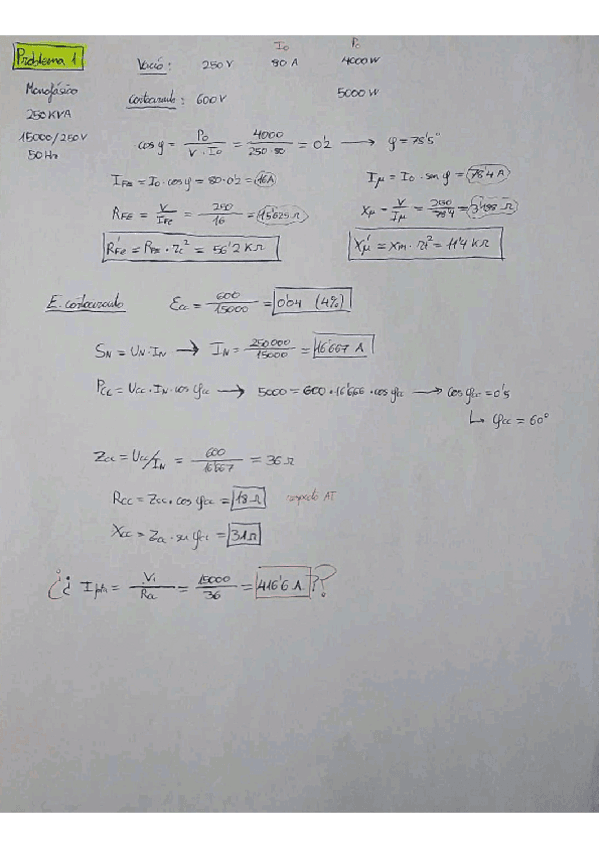 Problema 1
I₀ P₀
Vacío : 250 V 80 A 4000 W
Monofásico
250 KVA
15000/250 V
50 Hz
cortocircuito : 600 V 5000 W
cos φ = P₀ / V · I₀ = 4000 / 250·80 = 0'2 → φ = 78'5°
I_Fe = I₀ · cos φ = 80 · 0'2 = 16 A
Iμ = I₀ · sen φ = 78'4 A
R_Fe = V / I_Fe = 250 / 16 = 15'625 Ω
Xμ = V / Iμ = 250 / 78'4 = 3'188 Ω
R'_Fe = R_Fe · rt² = 56'2 KΩ
X'μ = Xm · rt² = 11'4 KΩ
E. cortocircuito
Ecc = 600 / 15000 = 0'04 (4%)
S_N = U_N · I_N → I_N = 250000 / 15000 = 16'667 A
Pcc = Ucc · I_N · cos φcc → 5000 = 600 · 16'666 · cos φcc → cos φcc = 0'5
↳ φcc = 60°
Zcc = Ucc/I_N = 600 / 16'667 = 36 Ω
Rcc = Zcc · cos φcc = 18 Ω respecto AT
Xcc = Zcc · sen φcc = 31 Ω
¿¿ = V₁ / Rcc = 15000 / 36 = 416'6 A ??